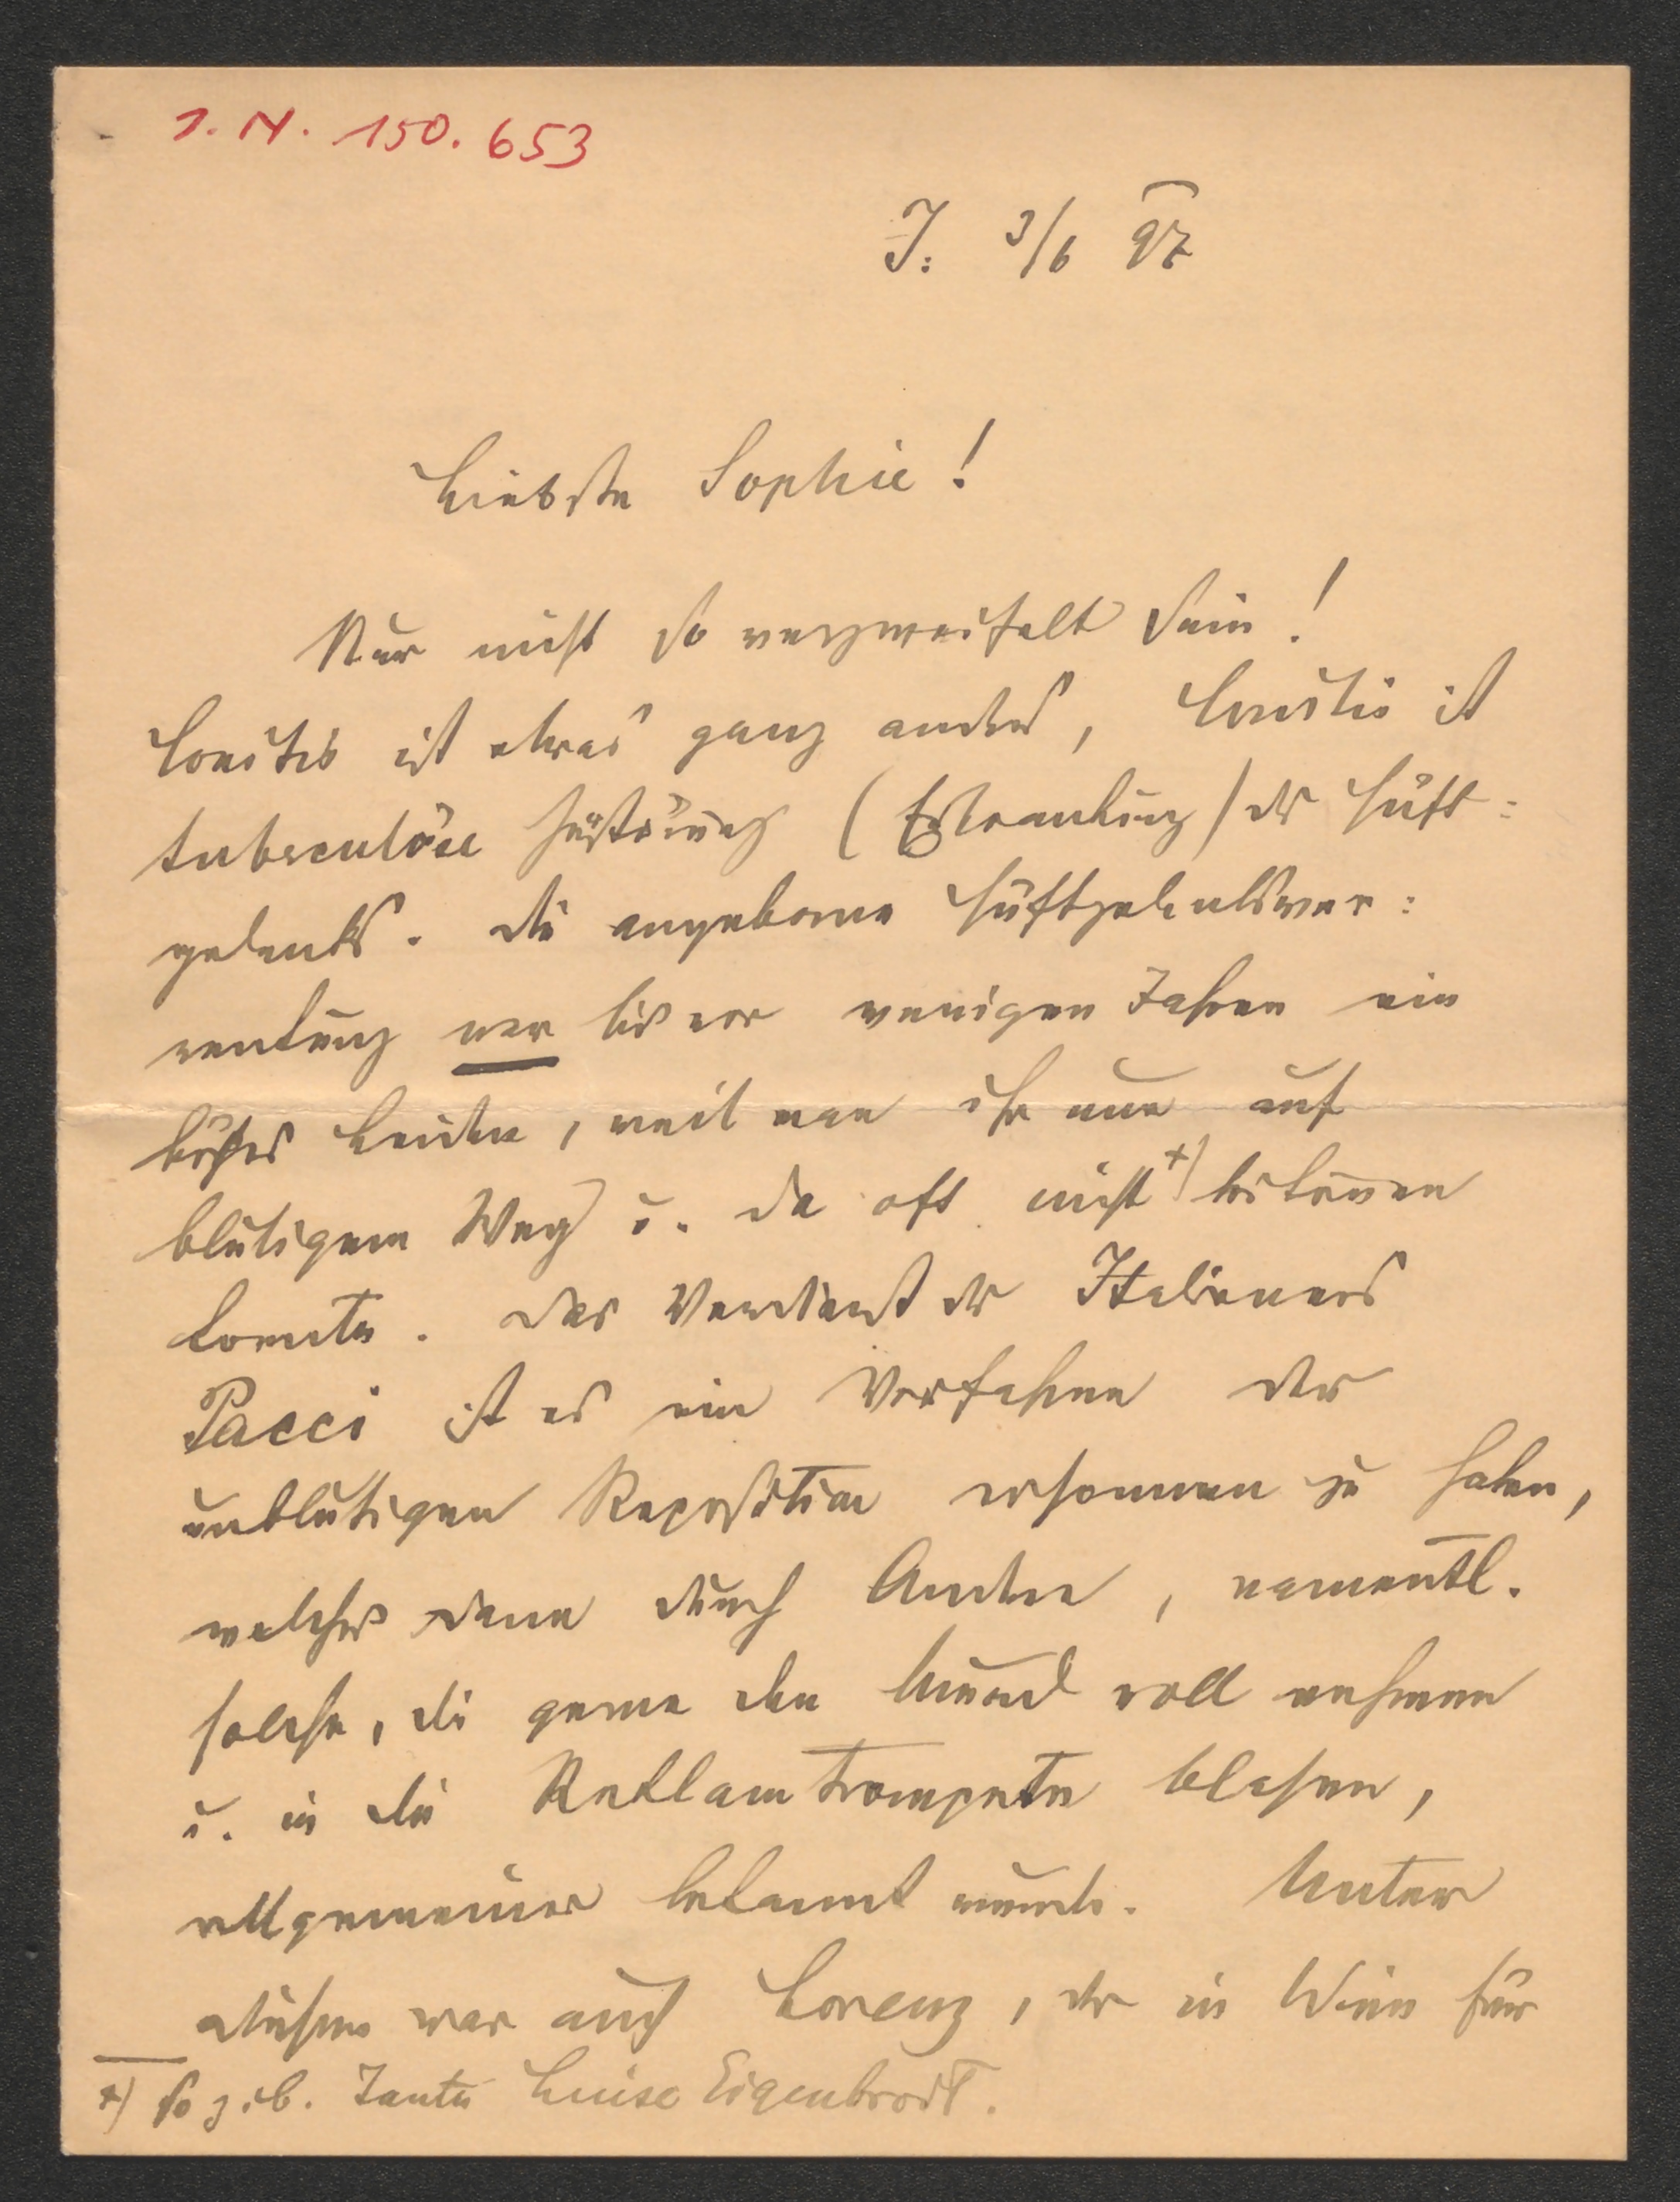 I. N. 150.653
I: 3/6 97
Liebste Sophie!
Nur nicht so verzweifelt sein!
Coxitis ist etwas ganz andres, Coxitis ist
tuberculöse Zerstörung (Erkrankung) der Hüft=
gelenks. Die angeborne Hüftgelenksver=
renkung war bis vor wenigen Jahren ein
böses Leiden, weil man ihr nur auf
blutigem Weg u. da oft nicht +) beikommen
konnte. Das Verdienst des Italieners
Pacci ist es ein Verfahren der
unblutigen Reposition ersonnen zu haben,
welches dann durch Andre, namentl.
solche, die gerne den Mund voll nehmen
u. in die Reklamtrompete blasen,
allgemeiner bekannt wurde. Unter
diesen war auch Lorenz, der in Wien für
+) so z. B. Tante Luise Eigenbrodt.